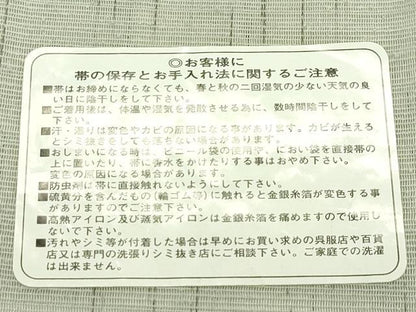 ◎お客様に
帯の保存とお手入れ法に関するご注意
■帯はお締めにならなくても、春と秋の二回湿気の少ない天気の良
い日に陰干しをして下さい。
■ご着用後は、体温や湿気を発散させる為に、数時間陰干しをして
下さい。
■汗・湿りは変色やカビの原因になる事があります。カビが生える
とシミ抜きをしても落ちない場合があります。
■おしまいになる時は、ビニール袋の使用や、におい袋を直接帯の
上に置いたり、帯に香水をかけたりする事はおやめ下さい。
変色の原因になる場合があります。
■防虫剤は帯に直接触れないようにして下さい。
■硫黄分を含んだもの(輪ゴム等)に触れると金銀糸箔が変色する事
がありますのでご注意下さい。
■高熱アイロン及び蒸気アイロンは金銀糸箔を痛めますので使用し
ないで下さい。
■汚れやシミ等が付着した場合は早めにお買い求めの呉服店や百貨
店又は専門の洗張りシミ抜き店にご相談下さい。ご家庭での洗濯
は出来ません。